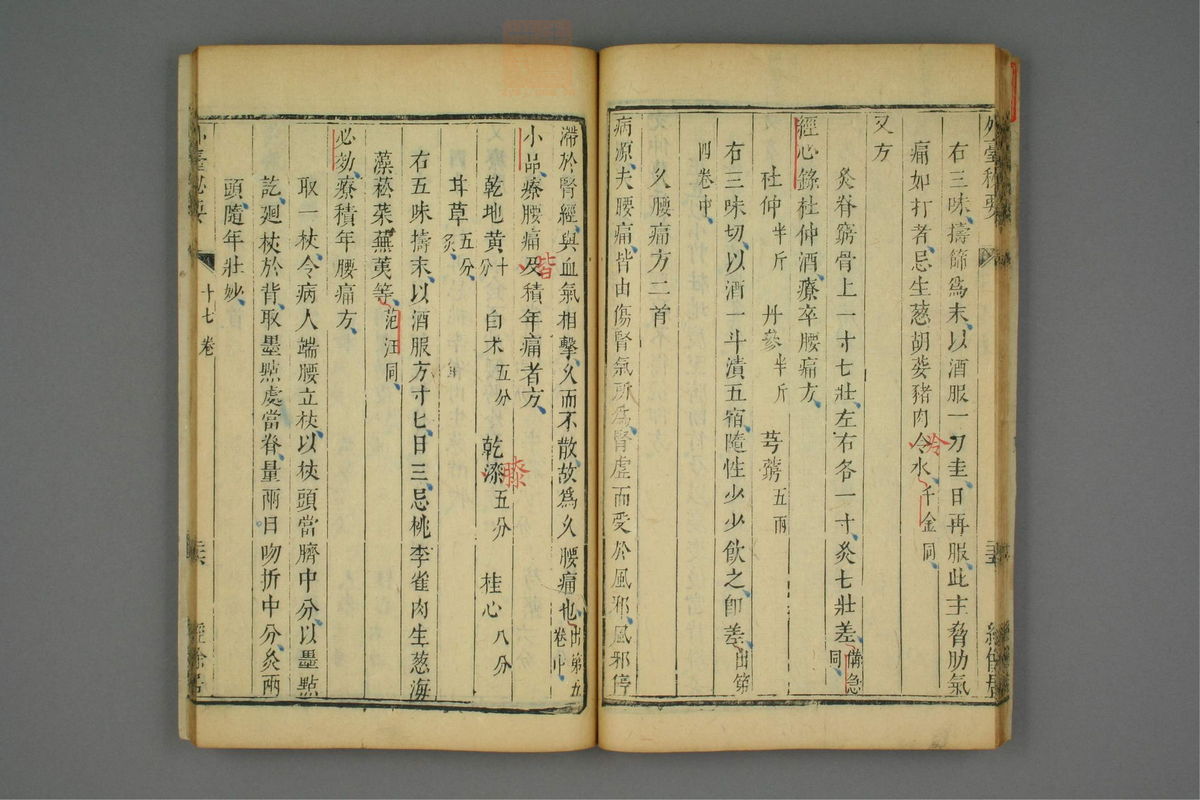 右三味擣篩為末以酒服一刀圭日再服此主脅肋氣
痛如打者忌生葱胡荽猪肉令水千金同
冷
又方
灸脊窮骨上一寸七壯左右各一寸灸七壯差備急同
經心錄杜仲酒療卒腰痛方
杜仲半斤 丹參半斤 芎藭五兩
右三味切以酒一斗漬五宿隨性少少飲之卽差出第
四卷中
久腰痛方二首
病源夫腰痛皆由傷腎氣所為腎虛而受於風邪風邪停
滯於腎經與血氣相擊久而不散故為久腰痛也出第五卷中
小品療腰痛及積年痛者方
皆
乾地黄十分 白术五分 乾漆五分 桂心八分
膝
甘草五分炙
右五味擣末以酒服方寸匕日三忌桃李雀肉生葱海
藻菘菜蕪荑等范汪同
必効療積年腰痛方
取一杖令病人端腰立杖以杖頭當臍中分以墨點
訖廻杖於背取墨點處當脊量兩口吻折中分灸兩
頭隨年壯妙
外臺秘要 十七卷